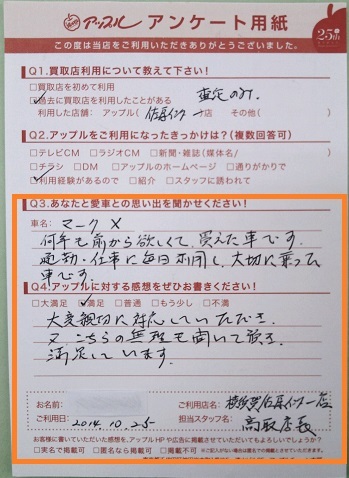 アップル アンケート用紙
25th
この度は当店をご利用いただきありがとうございました。
Q1.買取店利用について教えて下さい!
□買取店を初めて利用
☑過去に買取店を利用したことがある 査定のみ.
利用した店舗: アップル( 佐屋インター 店) その他( )
Q2.アップルをご利用になったきっかけは?(複数回答可)
□テレビCM □ラジオCM □新聞・雑誌(媒体名/ )
□チラシ □DM □アップルのホームページ □通りがかりで
☑利用経験があるので □紹介 □スタッフに誘われて
Q3.あなたと愛車との思い出を聞かせてください!
車名: マークX
何年も前から欲しくて、買えた車です。
通勤・仕事に毎日利用し、大切に乗った
車です。
Q4.アップルに対する感想をぜひお書きください!
□大満足 ☑満足 □普通 □もう少し □不満
大変親切に対応していただき、
又こちらの無理も聞いて頂き
満足しています。
お名前: ご利用店名: 横須賀佐原インター店
ご利用日: 2014.10.25 担当スタッフ名: 高取店長
お客様に書いていただいた感想を、アップルHPや広告に掲載させていただいてもよろしいでしょうか?
□実名で掲載可 □匿名なら掲載可 □掲載不可